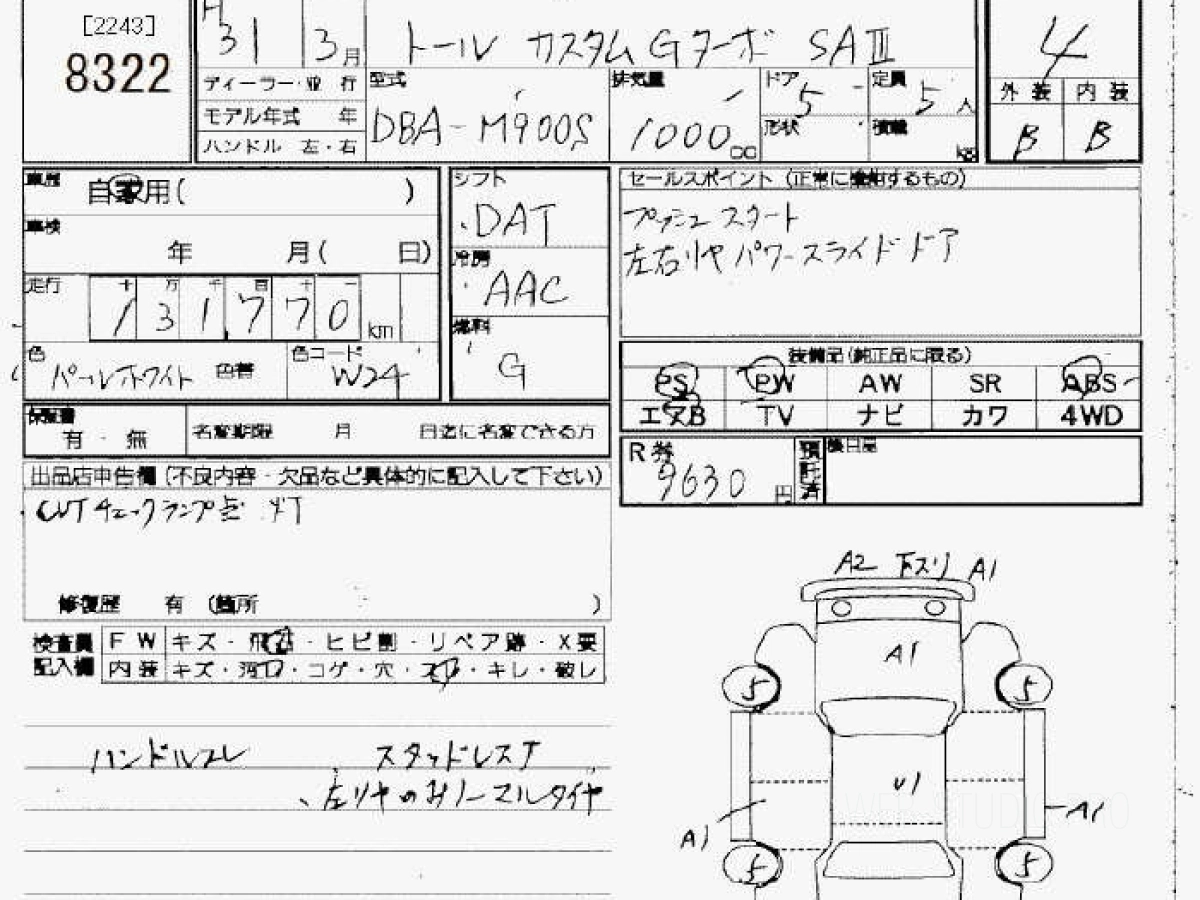 [2243]
8322
H
31 3月
トール カスタムGターボ SAⅢ
4
ディーラー・並行
モデル年式 年
ハンドル 左・右
型式
DBA-M900S
排気量
1000cc
ドア
5
形状
定員
5人
積載
kg
外装 内装
B B
車歴
自家用( )
車検
年 月( 日)
走行
十 万 千 百 十 一
131,770 km
色
パールホワイト
色替
色コード
W24
シフト
DAT
冷房
AAC
燃料
G
セールスポイント (正常に機能するもの)
プッシュスタート
左右リヤパワースライドドア
装備品(純正品に限る)
PS PW AW SR ABS
エアB TV ナビ カワ 4WD
保証書
有・無
名変期限 月 日迄に名変できる方
R券
9630円
預託済
後日品
出品店申告欄(不良内容・欠品など具体的に記入して下さい)
CVTチェックランプ点灯
修復歴 有 (箇所 )
検査員記入欄
FW キズ・飛石・ヒビ割・リペア跡・X要
内装 キズ・汚れ・コゲ・穴・スレ・キレ・破レ
ハンドルスレ スタッドレスT
左リヤのみノーマルタイヤ
A2 下スリ A1
A1
5 5
U1
A1 A1
5 5